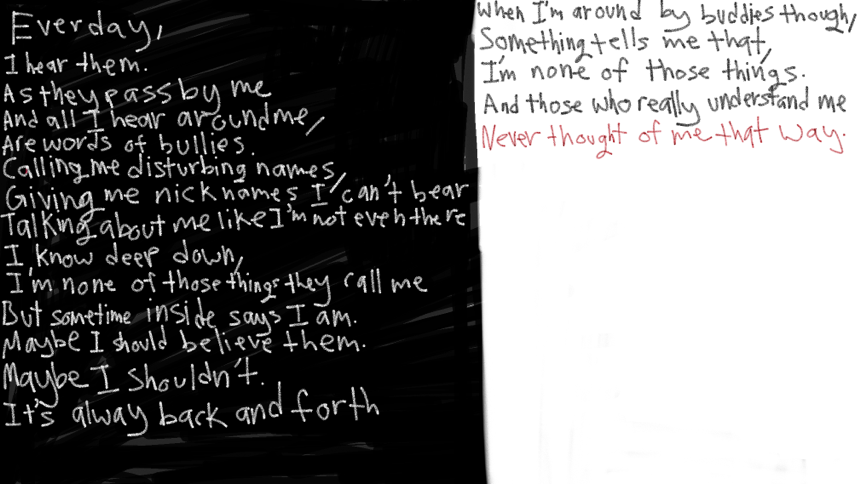 Everday,
I hear them.
As they pass by me
And all I hear around me,
Are words of bullies.
Calling me disturbing names,
Giving me nick names I can't bear
Talking about me like I'm not even there
I know deep down,
I'm none of those things they call me
But sometime inside says I am.
Maybe I should believe them.
Maybe I shouldn't.
It's alway back and forth
When I'm around by buddies though,
Something tells me that,
I'm none of those things.
And those who really understand me
Never thought of me that way.